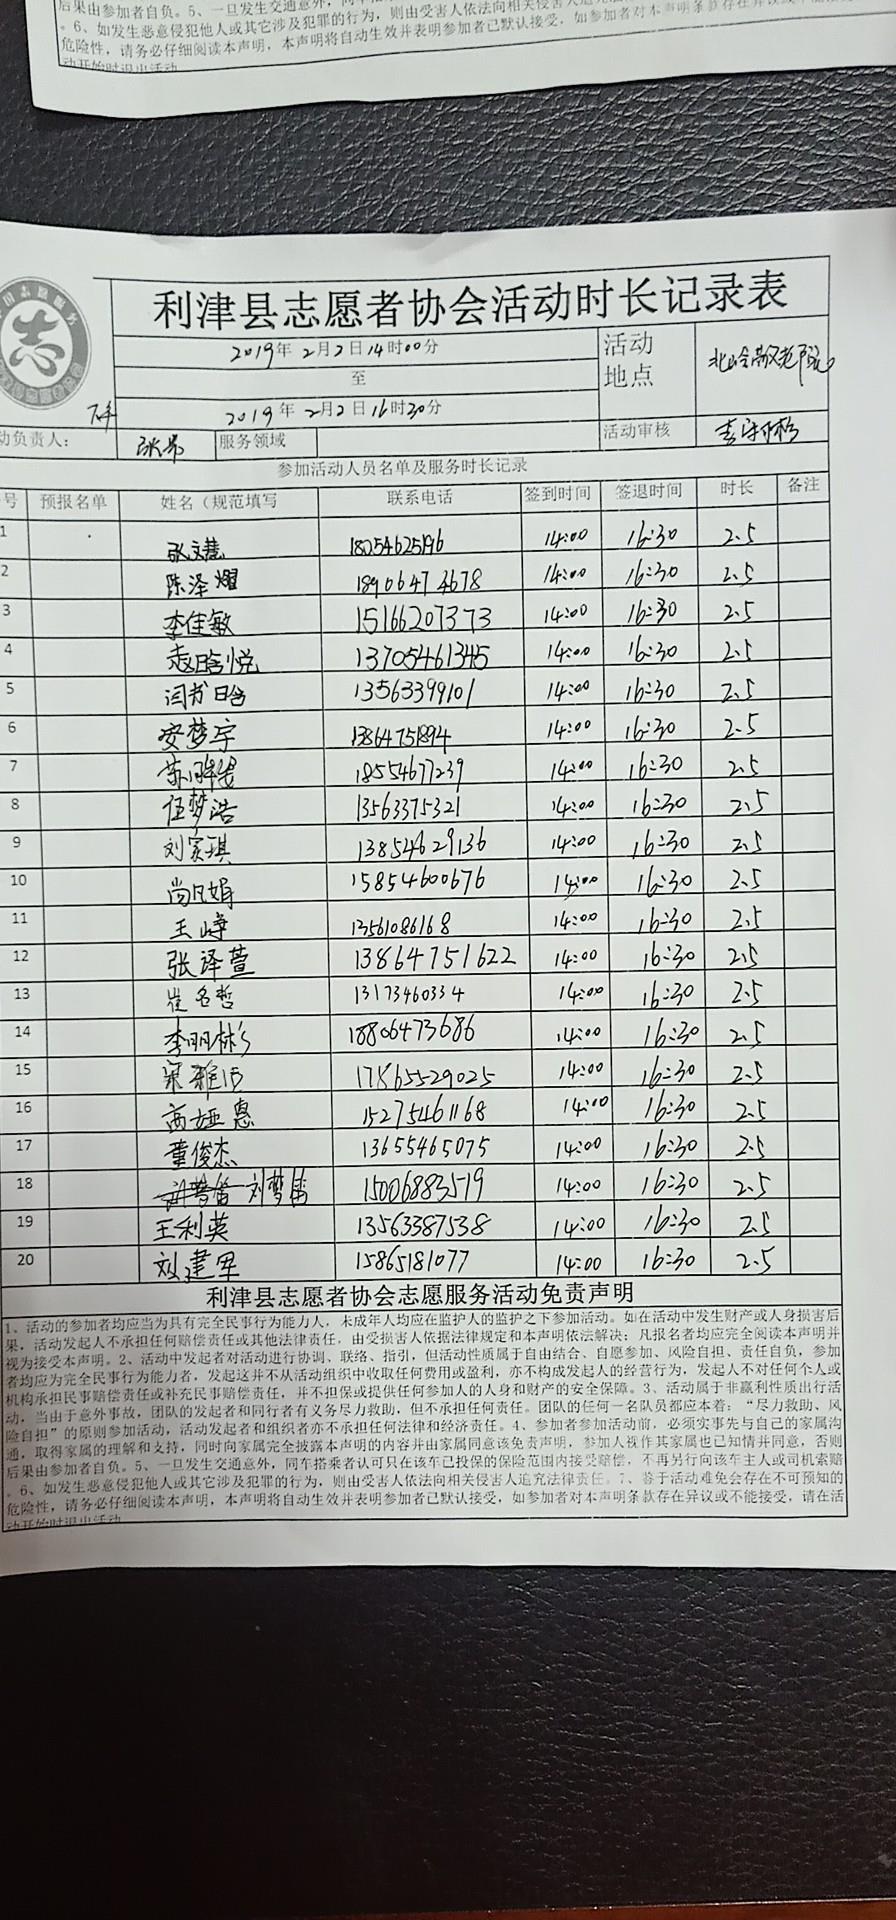 后果由参加者自负。5、一旦发生交通意外，同车搭
。6、如发生恶意侵犯他人或其它涉及犯罪的行为，则由受害人依法向相关侵害人追究法
危险性，请务必仔细阅读本声明，本声明将自动生效并表明参加者已默认接受，如参加者对本声明条款存在异议或
动开始时退出活动
利津县志愿者协会活动时长记录表
2019年 2月2日14时00分
至
2019年 2月2日16时30分
活动
地点
动负责人：
服务领域
活动审核
参加活动人员名单及服务时长记录
号 预报名单 姓名（规范填写 联系电话 签到时间 签退时间 时长 备注
1 张文慧 18054625196 14:00 16:30 2.5
2 陈泽耀 18906474678 14:00 16:30 2.5
3 李佳敏 15166207373 14:00 16:30 2.5
4 赵晗悦 13705461345 14:00 16:30 2.5
5 闫书晗 13563399101 14:00 16:30 2.5
6 安梦宇 13864751894 14:00 16:30 2.5
7 18554677239 14:00 16:30 2.5
8 伍梦浩 13563375321 14:00 16:30 2.5
9 刘家琪 13854629136 14:00 16:30 2.5
10 尚凡娟 15854600676 14:00 16:30 2.5
11 王峥 13561086168 14:00 16:30 2.5
12 张译萱 13864751622 14:00 16:30 2.5
13 崔名哲 13173460334 14:00 16:30 2.5
14 李丽彬 18806473686 14:00 16:30 2.5
15 宋雅洁 17865529025 14:00 16:30 2.5
16 高娅惠 15275461168 14:00 16:30 2.5
17 董俊杰 13655465075 14:00 16:30 2.5
18 刘梦笛 15006883519 14:00 16:30 2.5
19 王利英 13563387538 14:00 16:30 2.5
20 刘建军 15865181077 14:00 16:30 2.5
利津县志愿者协会志愿服务活动免责声明
1、活动的参加者均应当为具有完全民事行为能力人，未成年人均应在监护人的监护之下参加活动。如在活动中发生财产或人身损害后
果，活动发起人不承担任何赔偿责任或其他法律责任，由受损害人依据法律规定和本声明依法解决；凡报名者均应完全阅读本声明并
视为接受本声明。2、活动中发起者对活动进行协调、联络、指引，但活动性质属于自由结合、自愿参加、风险自担、责任自负，参加
者均应为完全民事行为能力者，发起这并不从活动组织中收取任何费用或盈利，亦不构成发起人的经营行为，发起人不对任何个人或
机构承担民事赔偿责任或补充民事赔偿责任，并不担保或提供任何参加人的人身和财产的安全保障。3、活动属于非赢利性质出行活
动，当由于意外事故，团队的发起者和同行者有义务尽力救助，但不承担任何责任。团队的任何一名队员都应本着：“尽力救助、风
险自担”的原则参加活动，活动发起者和组织者亦不承担任何法律和经济责任。4、参加者参加活动前，必须实事先与自己的家属沟
通，取得家属的理解和支持，同时向家属完全披露本声明的内容并由家属同意该免责声明，参加人视作其家属也已知情并同意，否则
后果由参加者自负。5、一旦发生交通意外，同车搭乘者认可只在该车已投保的保险范围内接受赔偿，不再另行向该车主人或司机索赔
。6、如发生恶意侵犯他人或其它涉及犯罪的行为，则由受害人依法向相关侵害人追究法律责任。7、鉴于活动难免会存在不可预知的
危险性，请务必仔细阅读本声明，本声明将自动生效并表明参加者已默认接受，如参加者对本声明条款存在异议或不能接受，请在活
动开始时退出活动